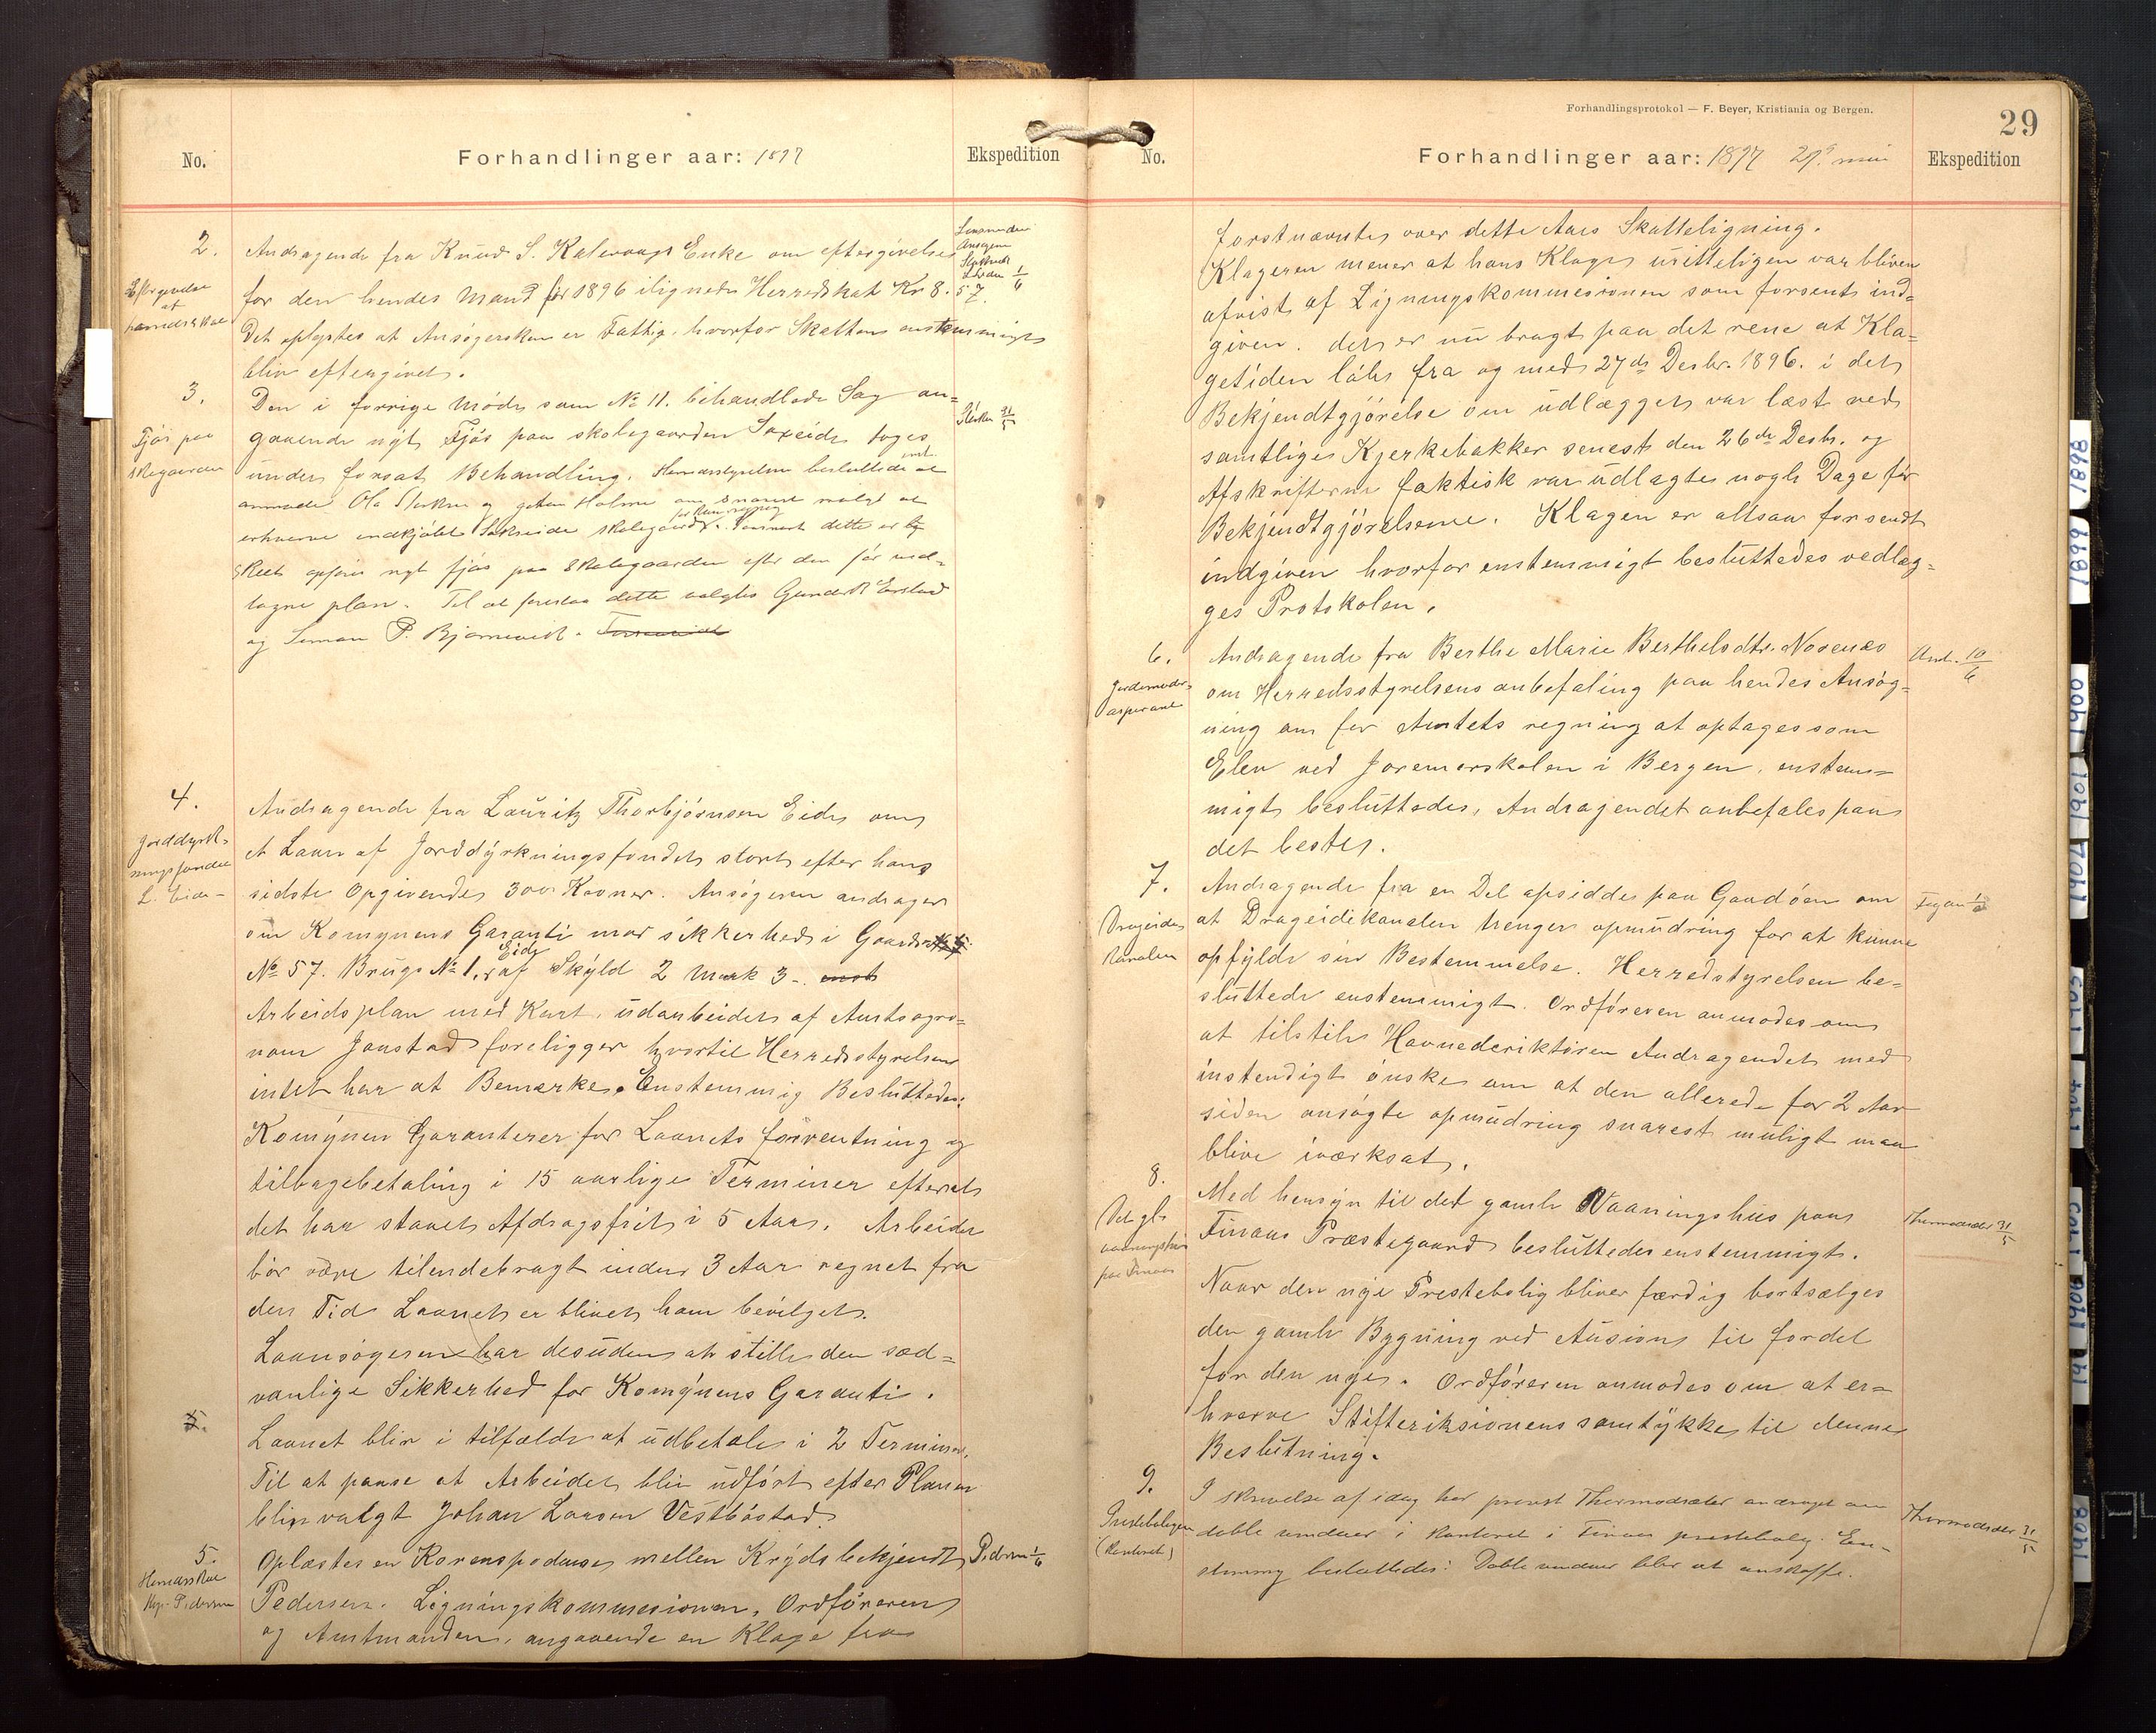 No.
Forhandlinger aar: 1897
Ekspedition
2.
Andragende fra Knud S. Kalevaags Enke om eftergivelse
for den hendes Mand før 1896 ilignede Herredskat Kr 8.57.
Det oplystes at Ansøgersken er Fattig, hvorfor Skatten enstemmigt
bliv eftergivet.
Eftergivelse
af
3.
Den i forrige Møde som No 11. behandlede Sag an=
gaaende nyt Fjøs paa skolegaarden Sxeide toges
under forsat Behandling. Herredsstyrelsen besluttede at
anmode Ola og Holme om snarest muligt at
erhverve indkjøbt skolegaard. Snarest dette er
skeet opføre nyt fjøs paa Skolegaarden efter den før ved=
tagne plan. Til at forestaa dette valgtes Gunder Erstad
og Simon P. Bjørnevik.
Fjøs paa
skolegaarden
31/5
4.
Andragende fra Lauritz Thorbjørnsen Eide om
et Laan af Jorddyrkningsfondet stort efter hans
sidste Opgivende 300 Kroner. Ansøgeren andrager
om Komynens Garanti mod sikkerhed i Gaards
No 57. Brugs No 1, Eide af Skyld 2 Mark 3-. enst
Arbeidsplan med Kart, udarbeidet af Amtsagro=
nom Jonstad foreligger hvortil Herredsstyrelsen
intet har at Bemærke. Enstemmig Besluttedes:
Komynen Garanterer for Laanets forrentning og
tilbagebetaling i 15 aarlige Terminer efterat
det har staaet Afdragsfrit i 5 Aar. Arbeidet
bør være tilendebragt inden 3 Aar regnet fra
den Tid Laanet er blivet ham bevilget.
Laansøgeren har desuden at stille den sæd=
vanlige Sikkerhed for Komynens Garanti.
Laanet bliv i tilfælde at udbetale i 2 Terminer.
Til at paase at Arbeidet bliv udført efter Planen
bliv valgt Johan Larsen Vestbøstad.
Jorddyrk=
ningsfondet
L. Eide-
5.
5.
Oplæstes en Korenspodense mellem Kryds bekjendt
Pedersen. Ligningskommesionen, Ordføreren
og Amtmanden, angaaende en Klage fra
Pedersen 1/6
Forhandlingsprotokol — F. Beyer, Kristiania og Bergen.
29
No.
Forhandlinger aar: 1897 29de mai
Ekspedition
forstnævnte over dette Aars Skatteligning.
Klageren mener at hans Klage uritteligen var bliven
afvist af Ligningskommesionen som forsent ind=
given. det er nu bragt paa det rene at Kla=
getiden løb fra og med 27de Desbr. 1896. i det
Bekjendtgjørelse om udlægget var læst ved
samtlige Kjerkebakker senest den 26de Desbr. og
Afskrifterne faktisk var udlagte nogle Dage før
Bekjendtgjørelserne. Klagen er altsaa forsendt
indgiven hvorfor enstemmigt besluttedes vedlæg=
ges Protokolen.
6.
Andragende fra Berthe Marie Berthelsdtr. Nøvenæs
om Herredsstyrelsens anbefaling paa hendes Ansøg=
ning om for Amtets regning at optages som
Elev ved Joremorskolen i Bergen, enstem=
migt besluttedes, Andragendet anbefales paa
det beste.
Jordemoder=
aspirant
And. 10/6
7.
Andragende fra en Del opsidder paa Gaudøen om
at Drageidekanalen trenger opmudring for at kunne
opfylde sin Bestemmelse. Herredstyrelsen be=
sluttede enstemmigt. Ordføreren anmodes om
at tilstile Havnederiktøren Andragendet med
instendigt ønske om at den allerede for 2 Aar
siden ansøgte opmudring snarest muligt maa
blive iværksat.
Drageide
Kanalen
8.
Med hensyn til det gamle Vaaningshus paa
Finaas Præstegaard besluttedes enstemmigt.
Naar den nye Prestebolig bliver færdig bortsælges
den gamle Bygning ved Ausion til fordel
for den nye. Ordføreren anmodes om at er=
hverve Stifteriksionens samtykke til denne
Beslutning.
Det gle
vaaningshus
paa Finaas
Thormodsæter 31/5
9.
I skrivelse af idag har provst Thormodsæter andraget om
doble vinduer i kontoret i Finaas prestebolig. En=
stemmig besluttedes: Doble vinduer blir at anskaffe.
Prestebolegen
(Kontoret)
Thormodsæter 31/5
1898
1899
1900
1901
1902
1903
1904
1905
1906
1908